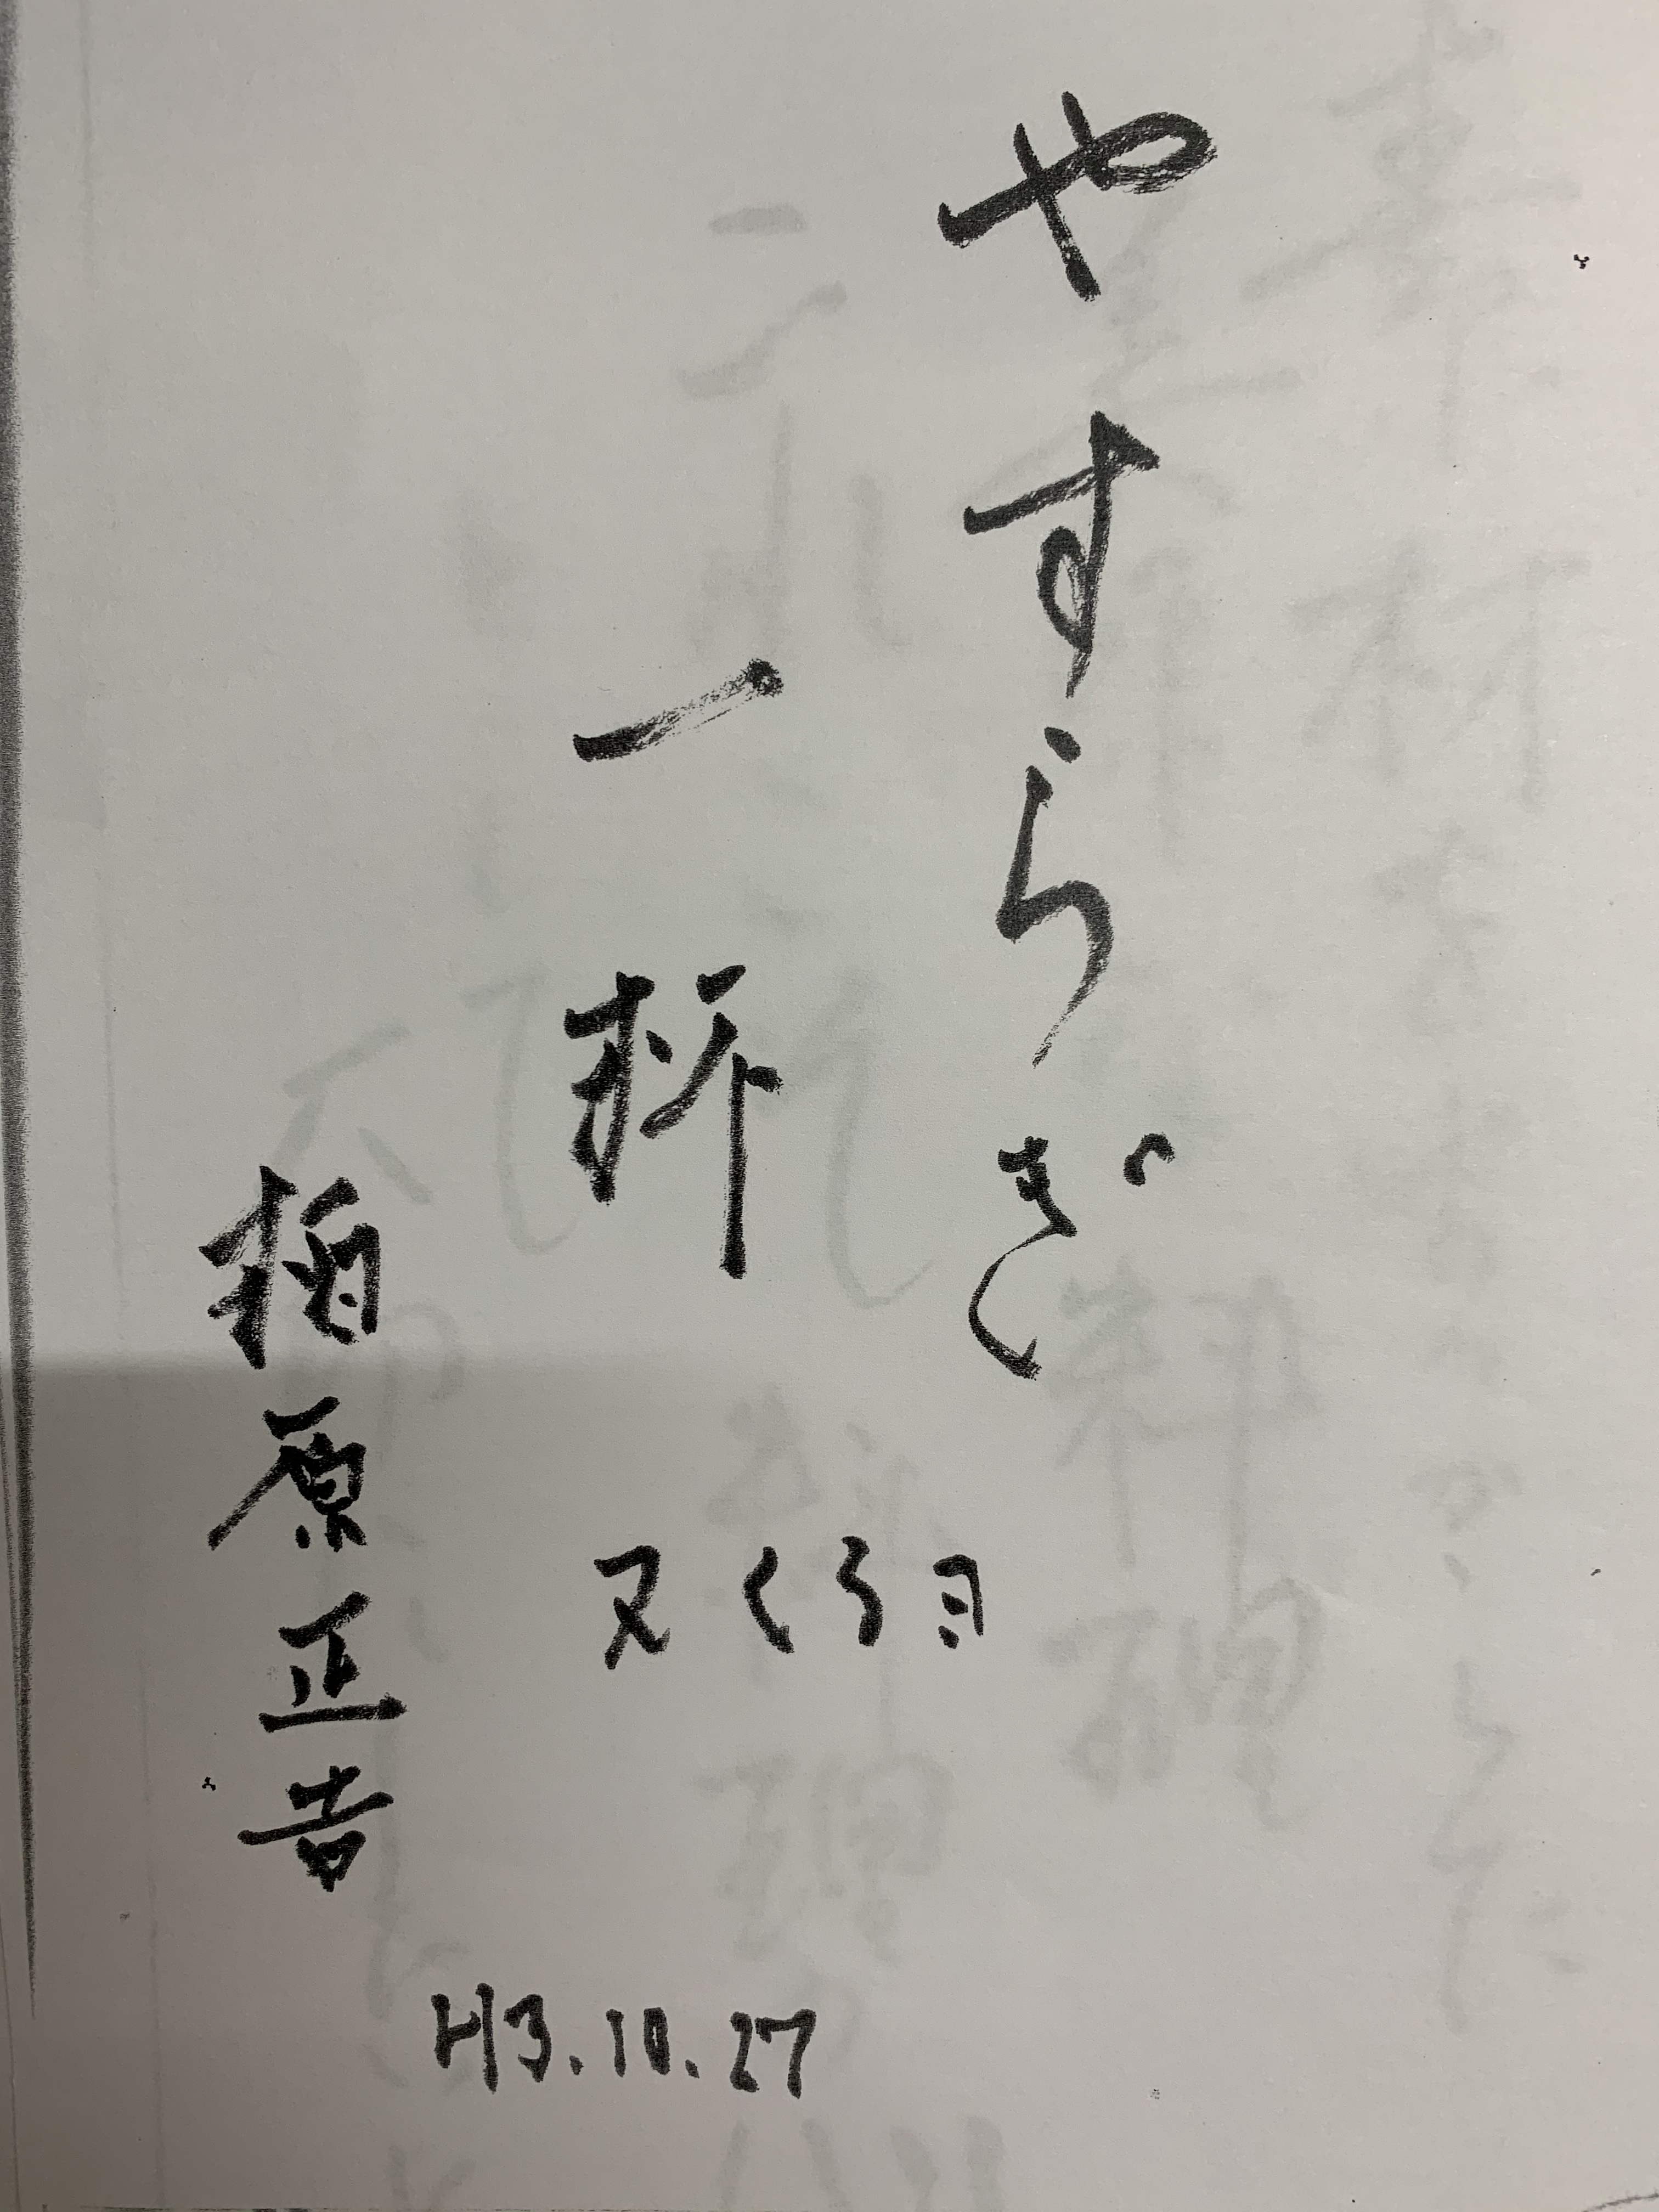 やすらぎ
一柝
又くる日
栢原正吉
H3.10.27